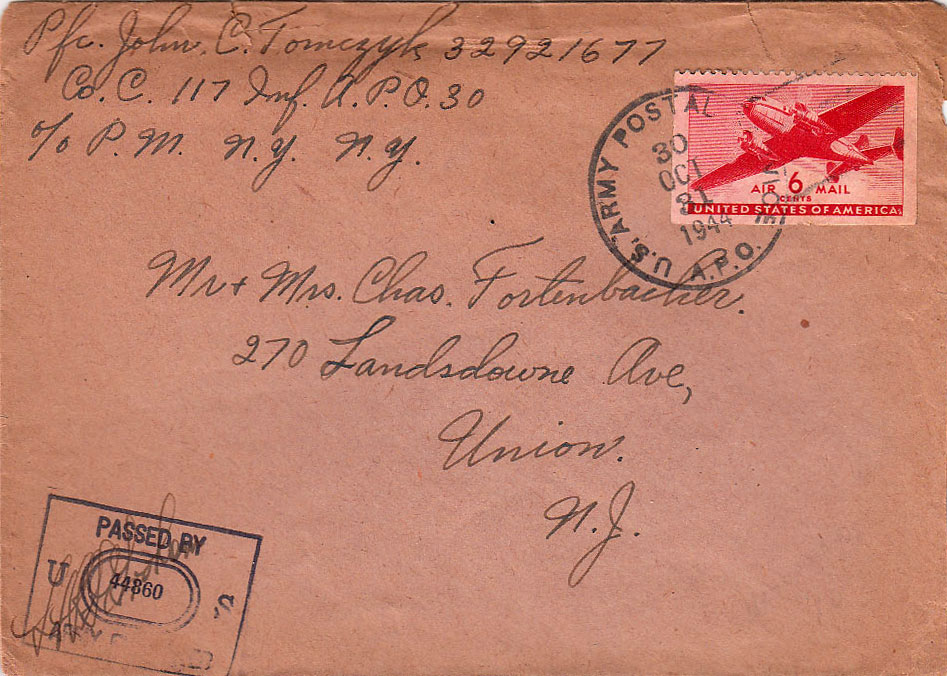 Pfc. John. C. Tomczyk 32921677
Co. C. 117 Inf. A.P.O. 30
c/o P.M. N.Y. N.Y.
U.S. ARMY POSTAL
A.P.O.
30
OCT
31
1944
AIR 6 MAIL
CENTS
UNITED STATES OF AMERICA
Mr + Mrs. Chas. Fortenbacher.
270 Landsdowne Ave,
Union.
N.J.
PASSED BY
U
44860